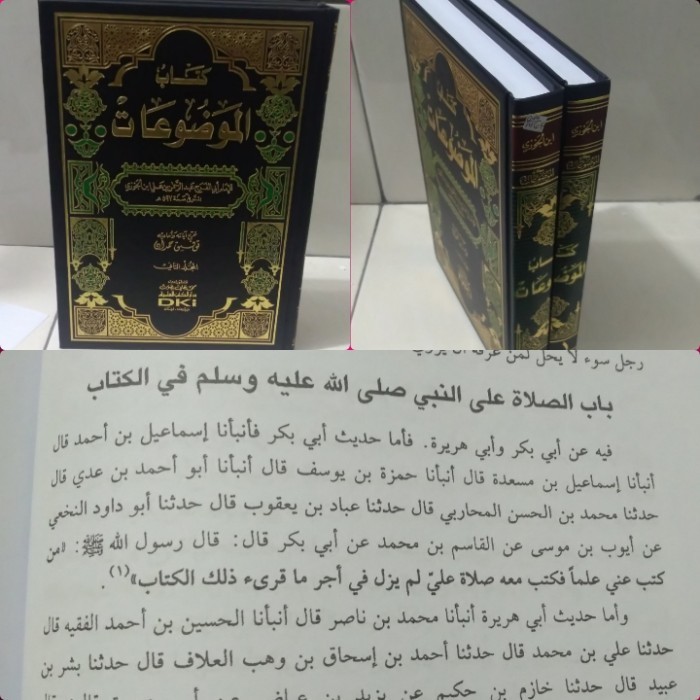 كتاب
الموضوعات
للإمام أبي الفرج عبد الرحمن بن علي ابن الجوزي
المتوفى سنة ٥٩٧ هـ
توفيق حمدان
المجلد الثاني
دار الكتب العلمية
DKI
ابن الجوزي
ابن الجوزي
كتاب
الموضوعات
كتاب
الموضوعات
كتاب
الموضوعات
رجل سوء لا يحل لمن عرفه أن يروي
باب الصلاة على النبي صلى الله عليه وسلم في الكتاب
فيه عن أبي بكر وأبي هريرة. فأما حديث أبي بكر فأنبأنا إسماعيل بن أحمد قال
أنبأنا إسماعيل بن مسعدة قال أنبأنا حمزة بن يوسف قال أنبأنا أبو أحمد بن عدي قال
حدثنا محمد بن الحسن المحاربي قال حدثنا عباد بن يعقوب قال حدثنا أبو داود النخعي
عن أيوب بن موسى عن القاسم بن محمد عن أبي بكر قال: قال رسول الله ﷺ: «من
كتب عني علماً فكتب معه صلاة عليّ لم يزل في أجر ما قرىء ذلك الكتاب»(١).
وأما حديث أبي هريرة أنبأنا محمد بن ناصر قال أنبأنا الحسين بن أحمد الفقيه قال
حدثنا علي بن محمد قال حدثنا أحمد بن إسحاق بن وهب العلاف قال حدثنا بشر بن
عبيد قال حدثنا خازم بن حكيم عن يزيد بن عياض عن